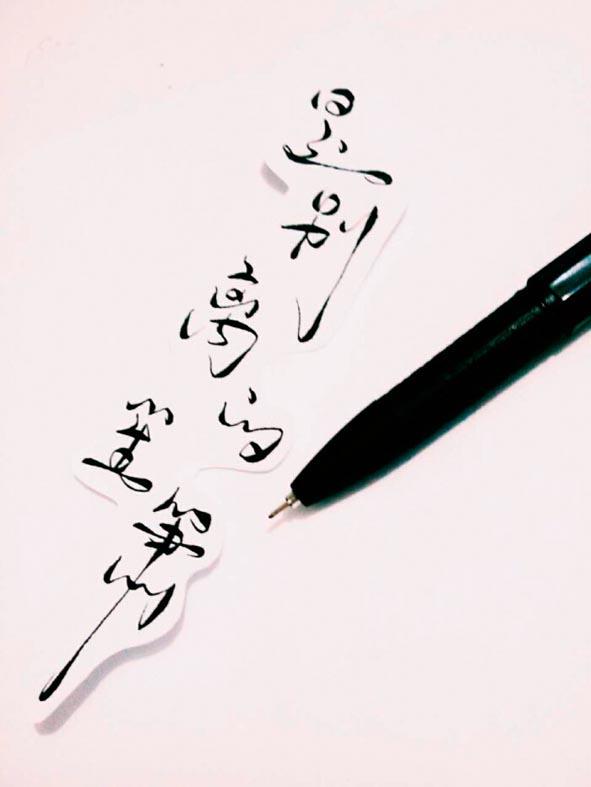 是别离的笙箫